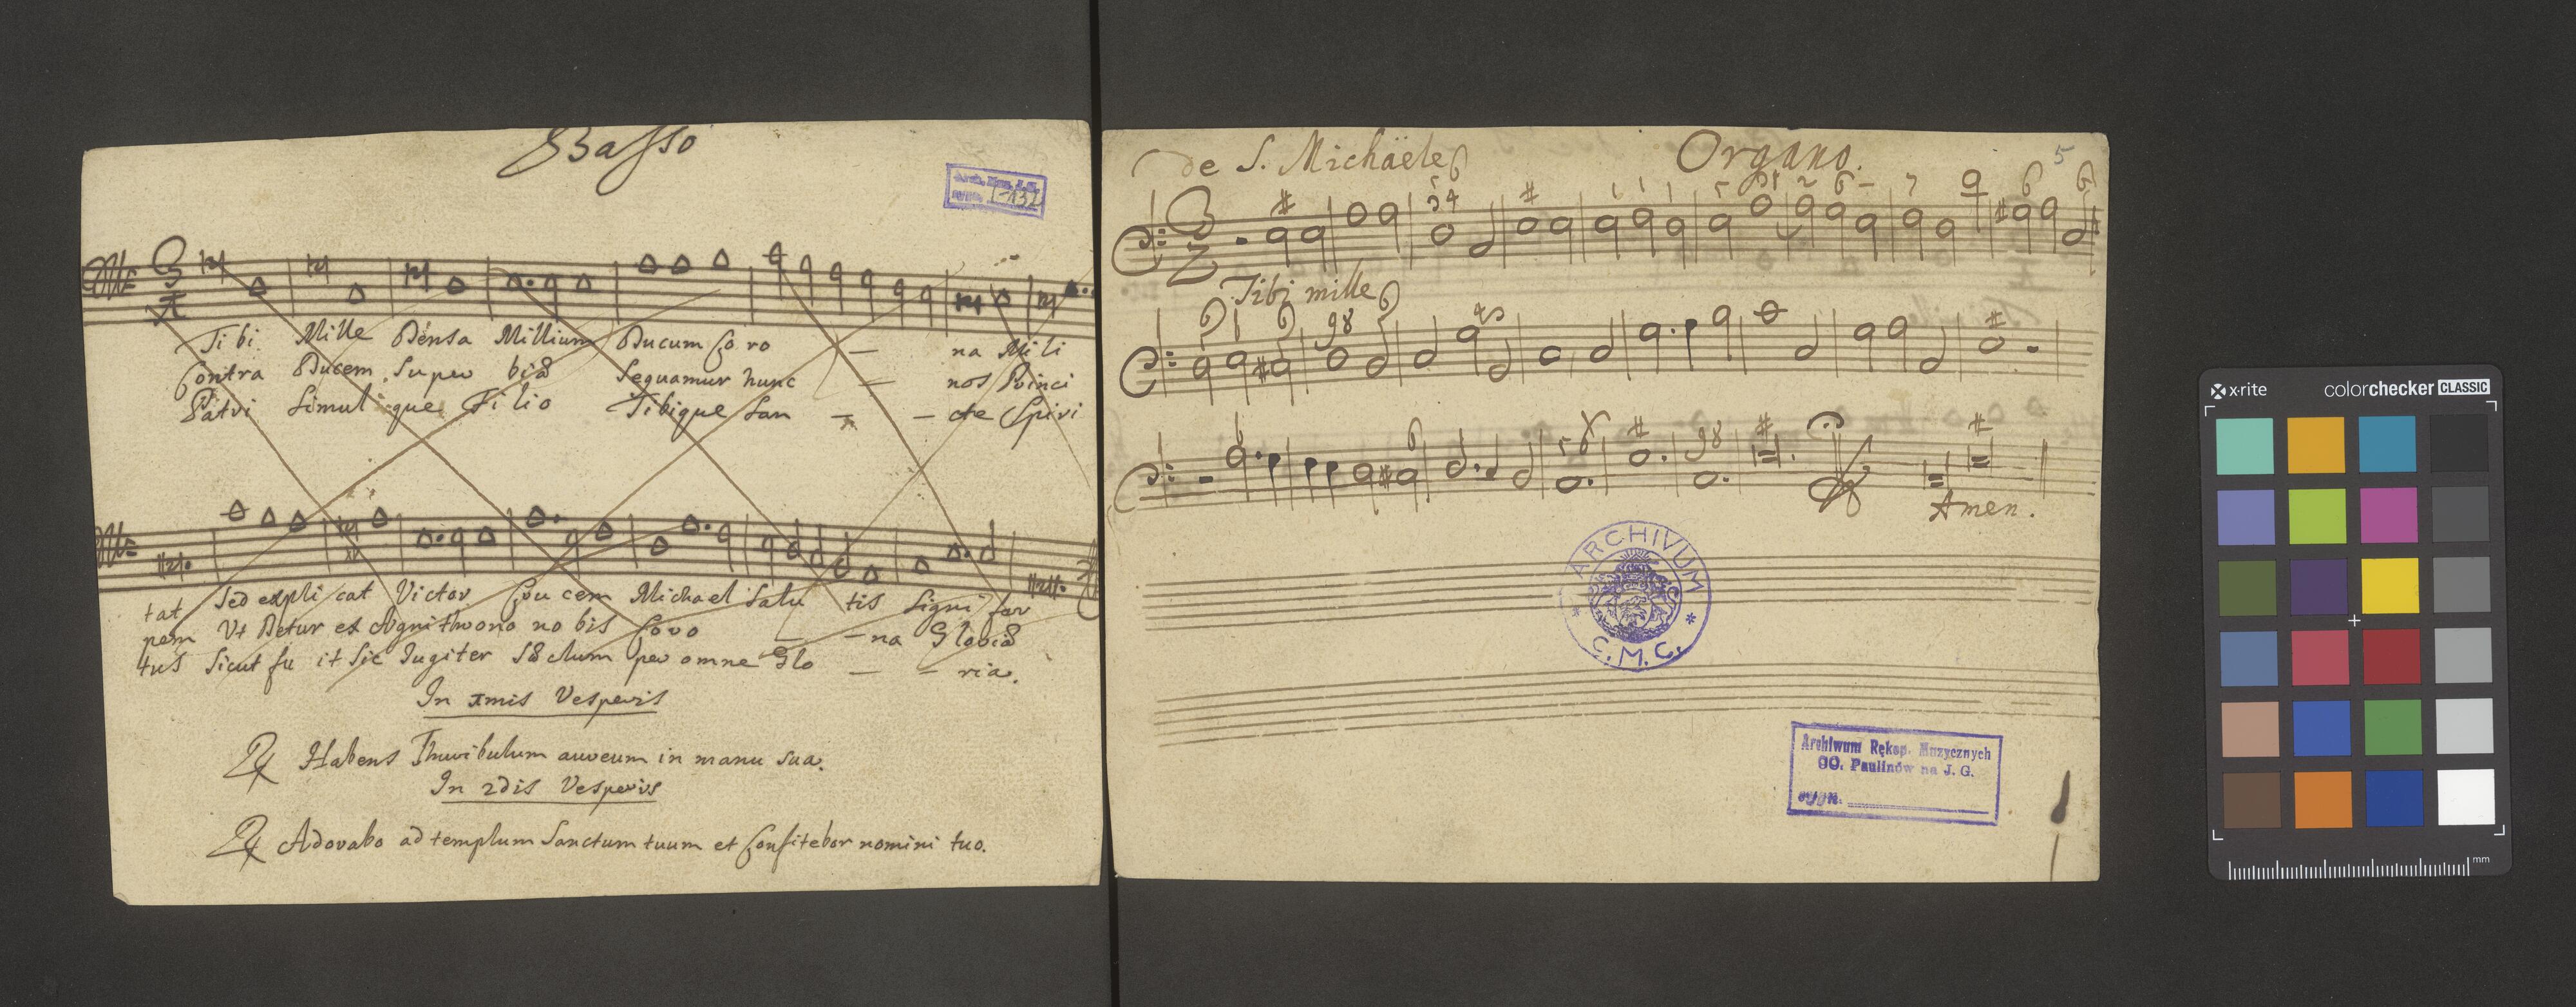 Basso
Arch. Muz. J.G.
I-132
Tibi Mille Densa Millium Ducum Coro — na Mili
Contra Ducem Super biæ Sequamur hunc — nos Princi
Patri Simul que Filio Tibique San — — cte Spiri
tat Sed expli cat Victor Cru cem Michael Salu tis Signi fer
pem Vt Detur ex Agni throno no bis Coro — — na Gloriæ
tus Sicut fu it Sic Iugiter Sæclum per omne Glo — — ria.
In 1mis Vesperis
℟ Habens Thuribulum aureum in manu sua.
In 2dis Vesperis
℟ Adorabo ad templum Sanctum tuum et Confitebor nomini tuo.
de S. Michäele
Organo.
5
Tibi mille
Amen.
ARCHIVUM
C.M.C.
Archiwum Rękop. Muzycznych
OO. Paulinów na J. G.
sygn.
x-rite colorchecker CLASSIC
mm